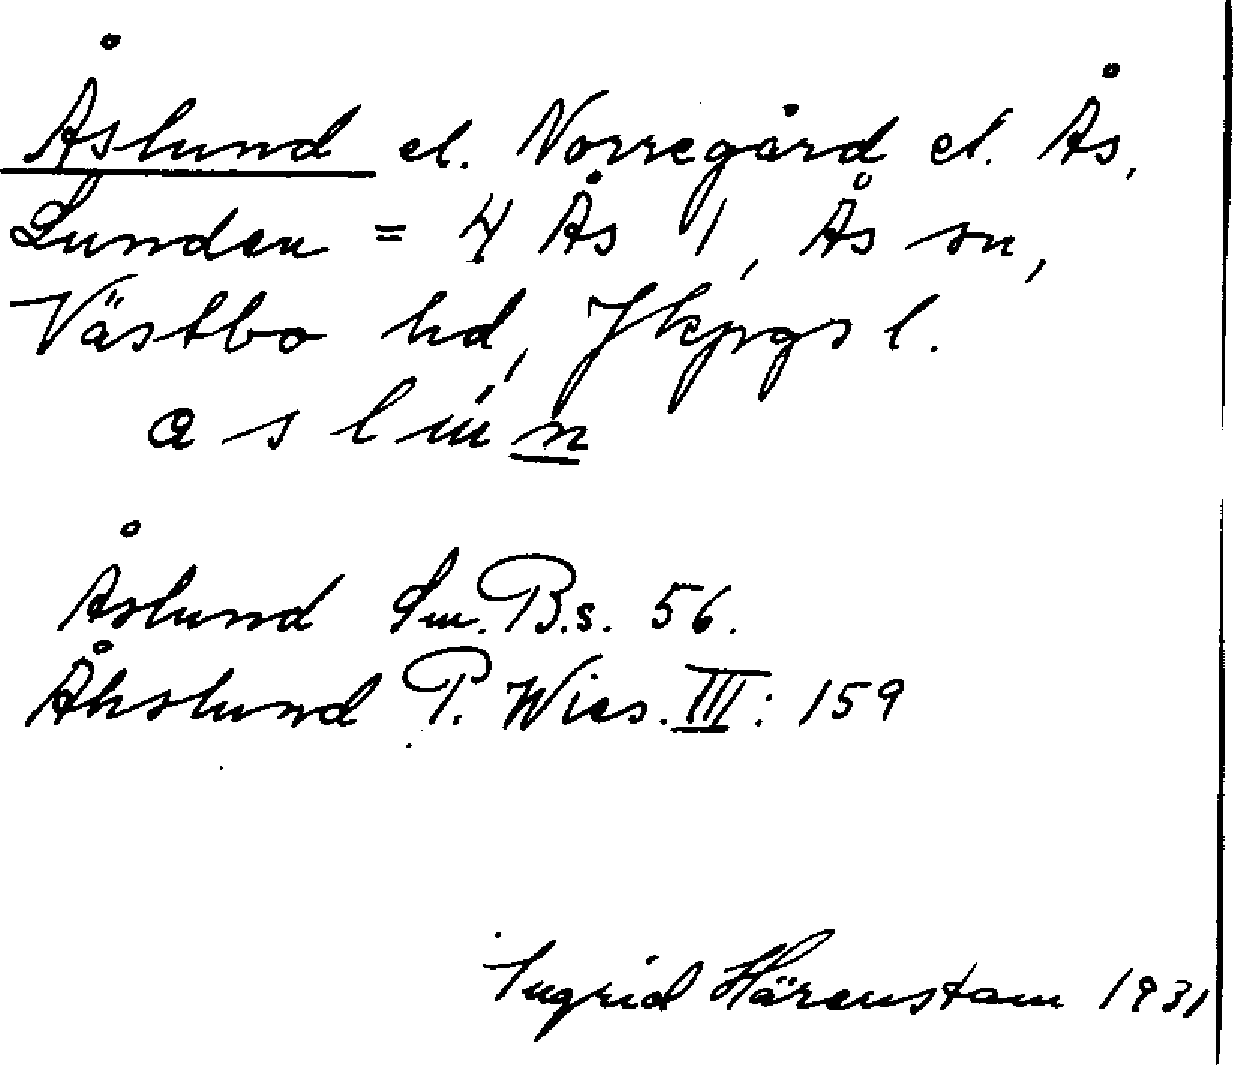 Åslund el. Norregård el. Ås,
Lunden = 4 Ås 1, Ås sn,
Västbo hd, Jkpgs l.
a s l u n
Åslund Sm. B.s. 56.
Åhslund P. Wies. III: 159
Ingrid Härenstam 1931